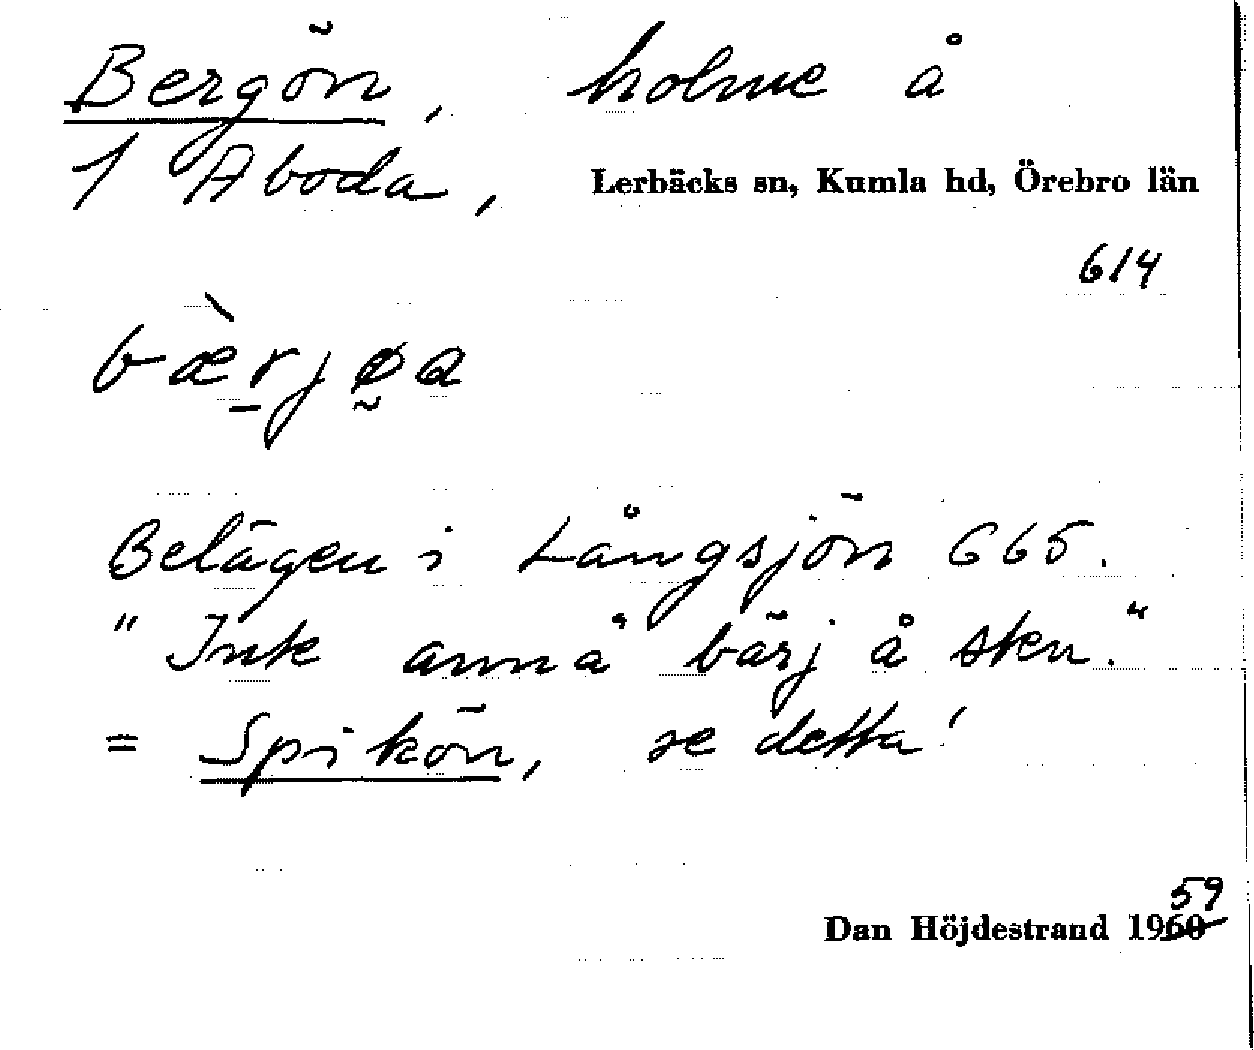 Bergön, holme å
1 Aboda, Lerbäcks sn, Kumla hd, Örebro län
614
bæ̀rjøa
Belägen i Långsjön 665.
"Inte anna bärj å sten."
= Spikön, se detta!
59
Dan Höjdestrand 1960